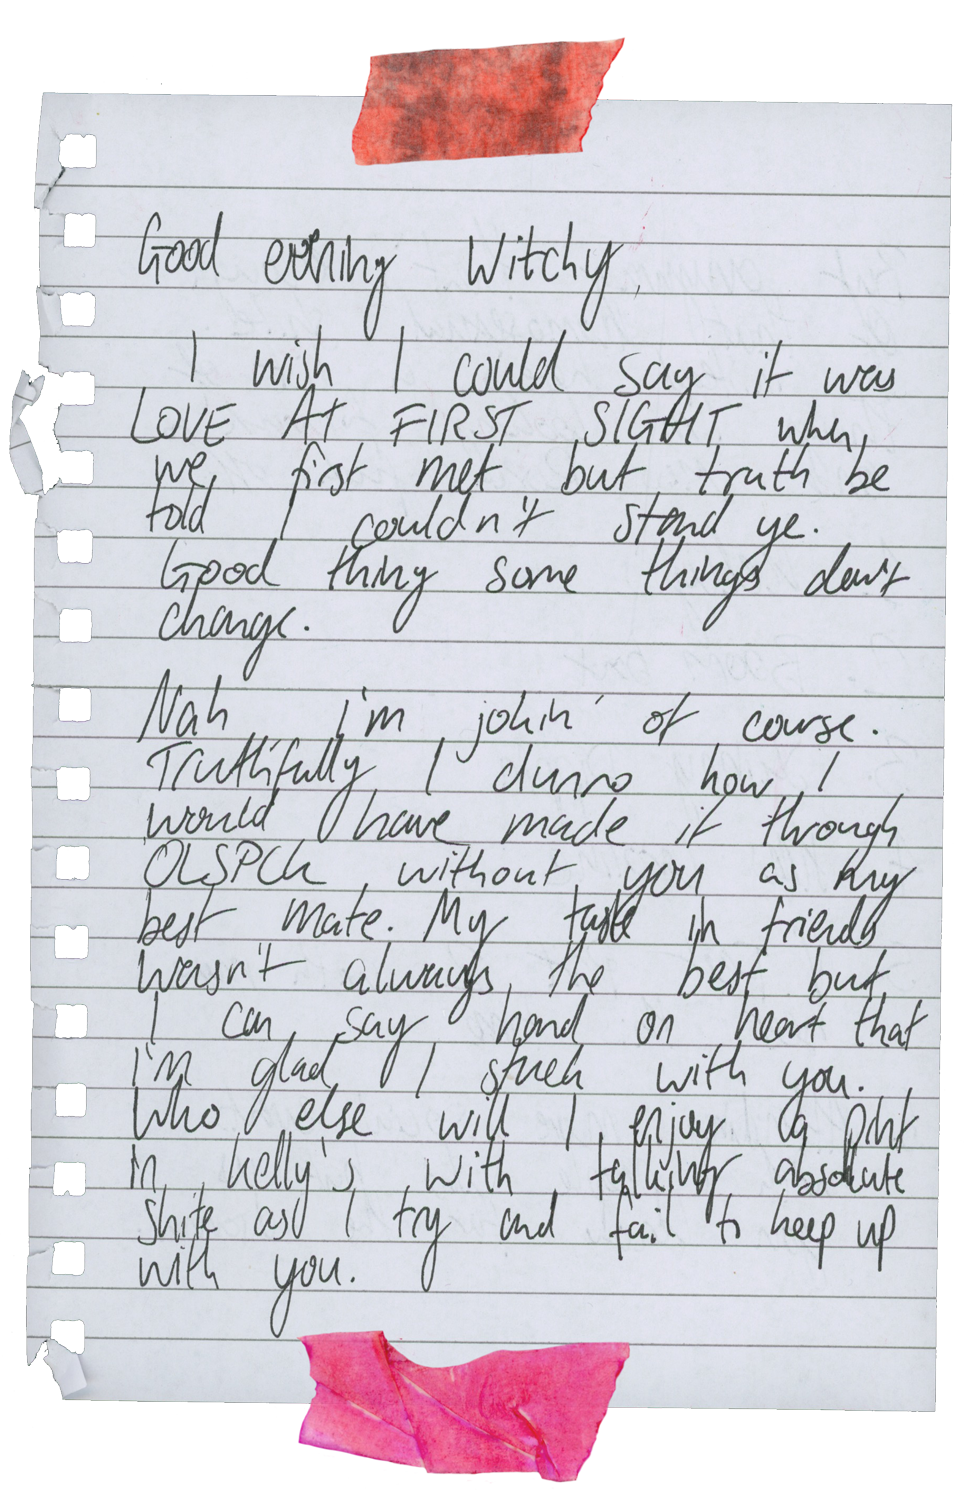 Good evening Witchy,
I wish I could say it was
LOVE At FIRST SIGHT when
we first met but truth be
told I couldn't stand ye.
Good thing some things don't
change.
Nah i'm jokin' of course.
Truthfully I dunno how I
would have made it through
OLSPCK without you as my
best mate. My taste in friends
wasn't always the best but
I can say hand on heart that
i'm glad I stuck with you.
Who else will I enjoy a pint
in kelly's with talking absolute
shite as I try and fail to keep up
with you.